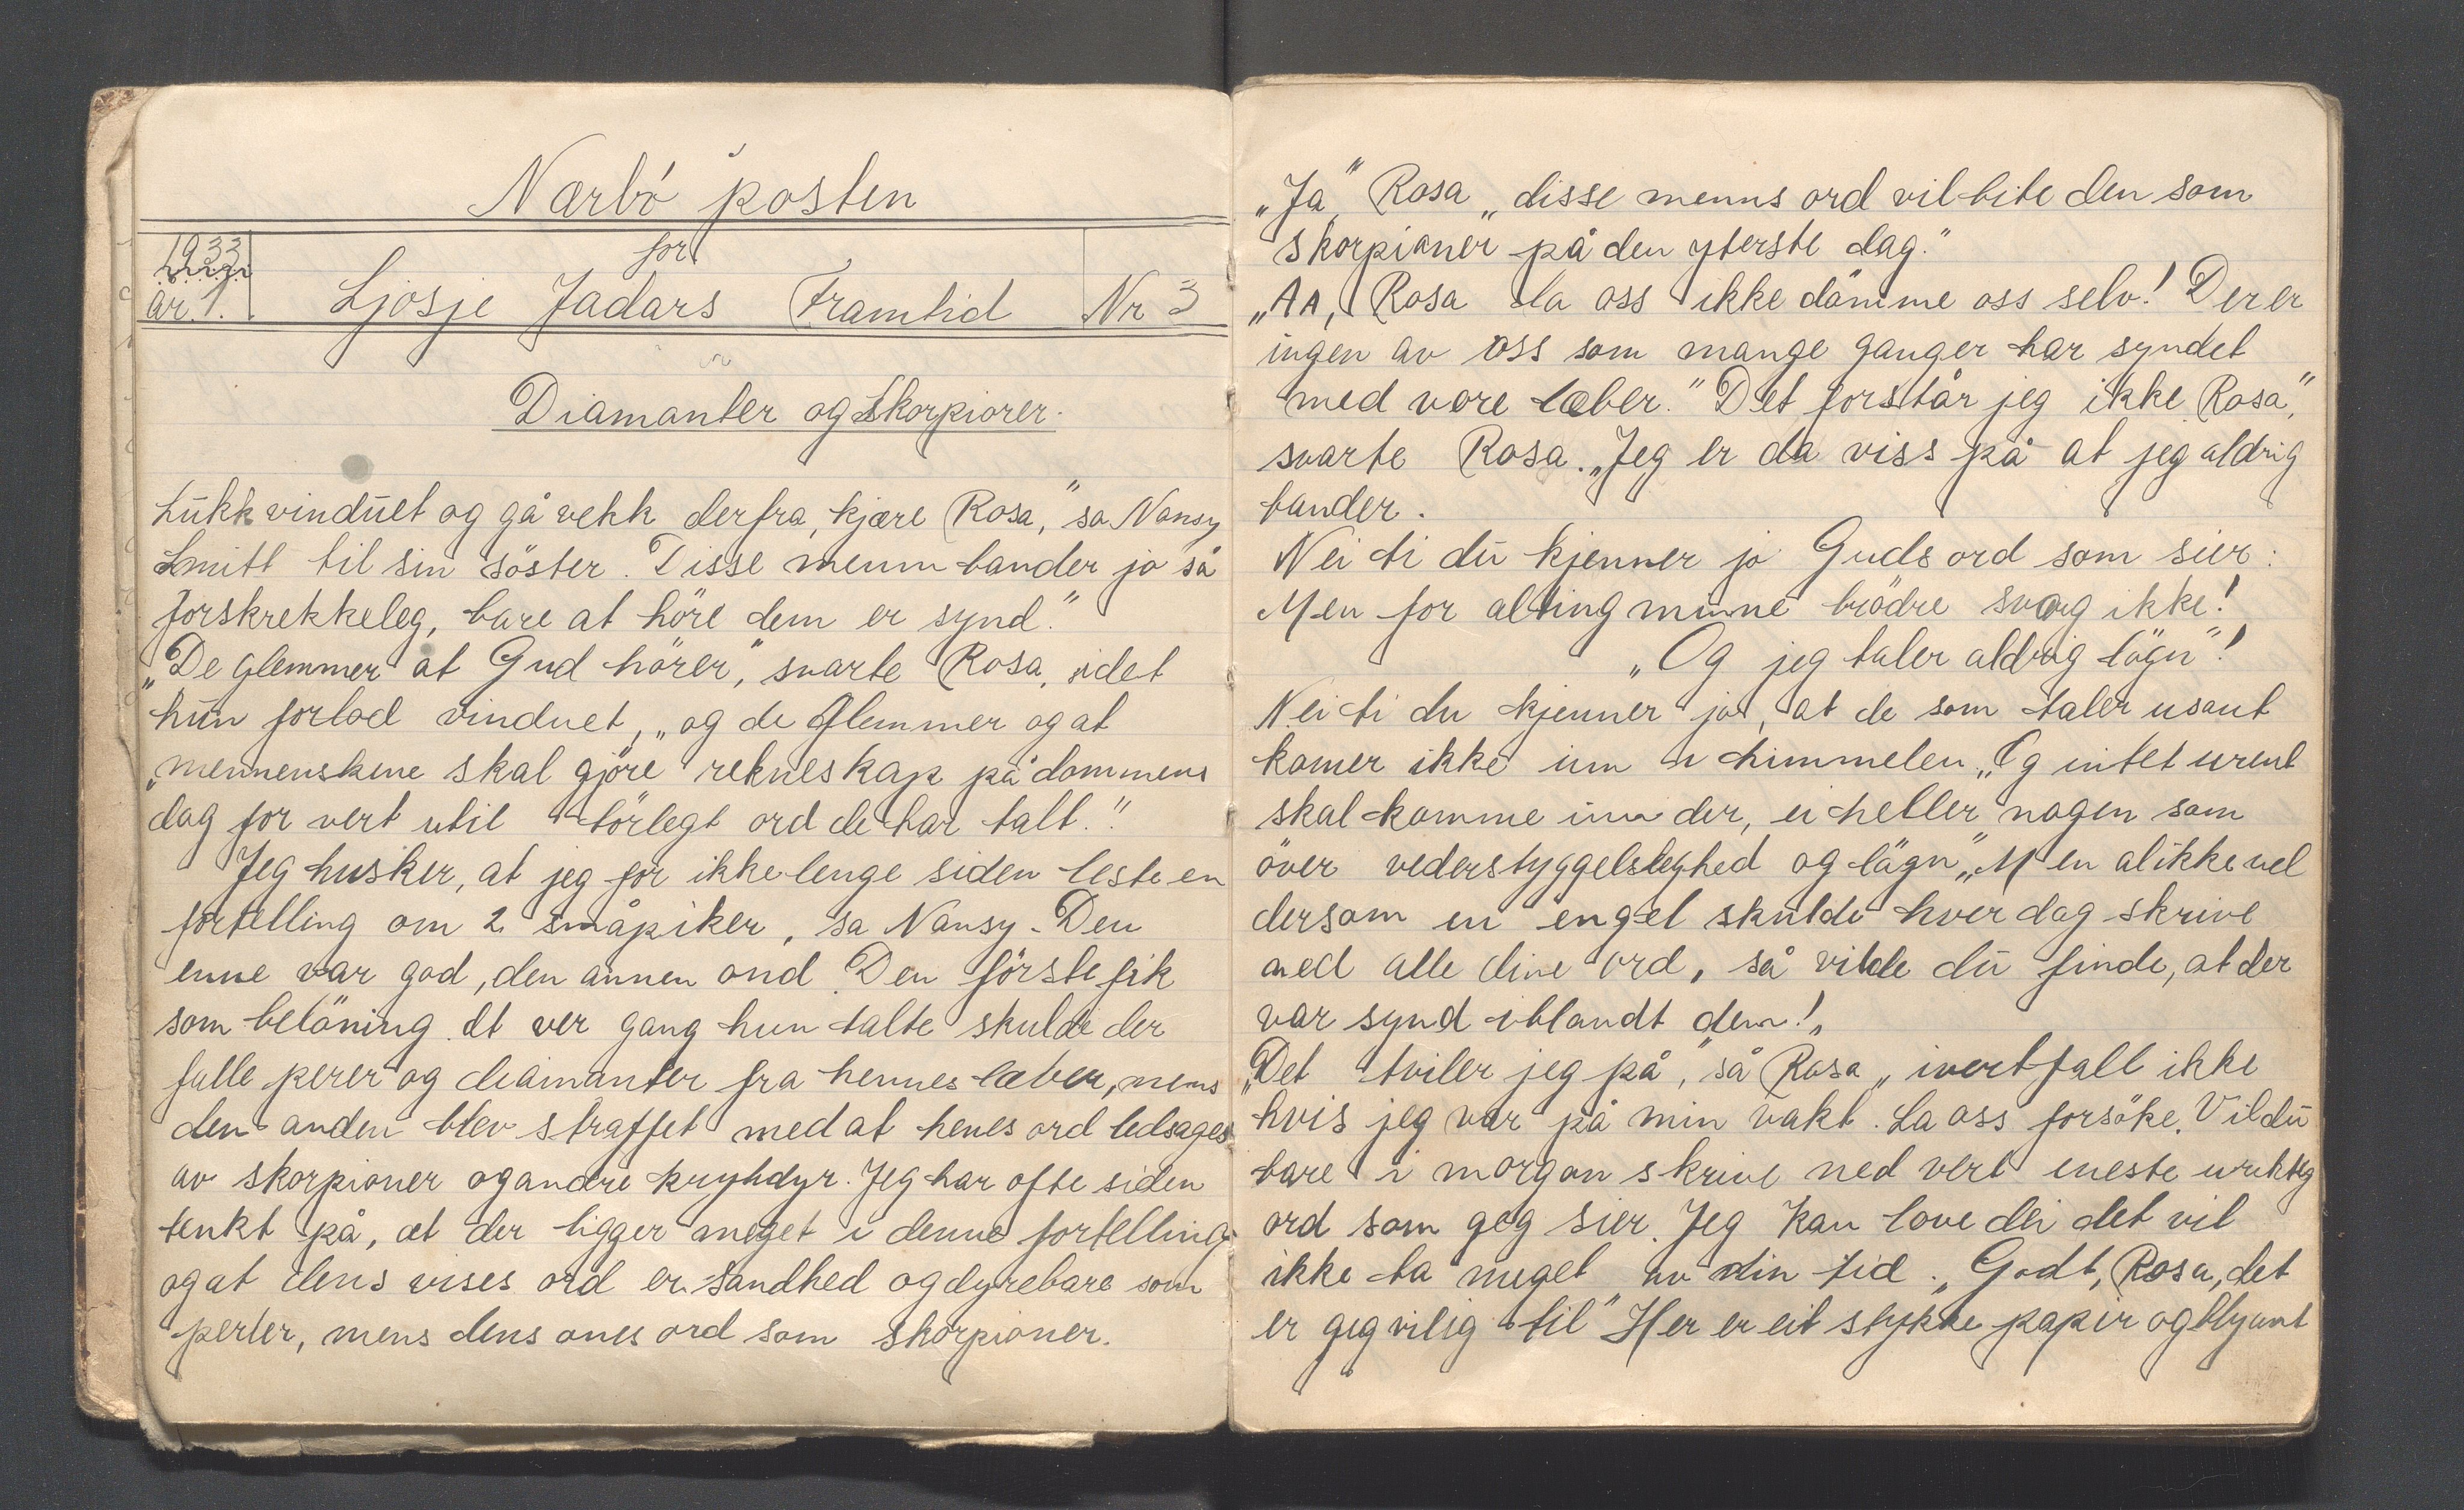 Nærbø posten
for
1933
år. 1.
Ljosje Jadars Framtid
Nr 3
Diamanter og Skorpiorer.
Lukk vinduet og gå vekk derfra, kjære Rosa," sa Nansy
Smitt til sin söster. Disse menn bander jo så
forskrekkeleg, bare at höre dem er synd."
„De glemmer at Gud hörer," svarte Rosa, idet
hun forlod vinduet, „og de glemmer og at
„mennenskene skal gjöre rekneskap på dommens
dag for vert util törlegt ord de har talt."
Jeg husker, at jeg for ikke lenge siden leste en
fortelling om 2 småpiker, sa Nansy. Den
enne var god, den annen ond. Den förste fik
som belöning at ver gang hun talte skulde der
falle perer og diamanter fra hennes læber, mens
den anden blev straffet med at henes ord ledsages
av skorpioner og andre kryhdyr. Jeg har ofte siden
tenkt på, at der ligger meget i denne fortelling
og at dens vises ord er sandhed og dyrebare som
perler, mens dens ones ord som skorpioner.
„Ja" Rosa „disse menns ord vil bite den som
skorpioner på den yterste dag."
„AA, Rosa la oss ikke dömme oss selv! Der er
ingen av oss som mange ganger har syndet
med vore læber." Det forstår jeg ikke Rosa,"
svarte Rosa. „Jeg er da viss på at jeg aldrig
bander.
Nei ti du kjenner jo Guds ord som sier:
Men for alting minne brödre sværg ikke!
„Og jeg taler aldrig lögn"!
Nei ti du kjenner jo, at de som taler usant
komer ikke inn i himmelen. „Og intet urent
skal komme inn der, ei heller nogen som
över vederstyggelsleghed og lögn„. Men alikkevel
dersom en engel skulde hver dag skrive
ned alle dine ord, så vilde du finde, at der
var synd iblandt dem!„
„Det tviler jeg på," så Rosa „ivertfall ikke
hvis jeg var på min vakt. La oss forsöke. Vil du
bare i morgon skrive ned vert eneste uriktig
ord som geg sier. Jeg kan love dei det vil
ikke ta meget av din tid. „Godt, Rosa, det
er geg vilig til" Her er eit stykke papir og blyant